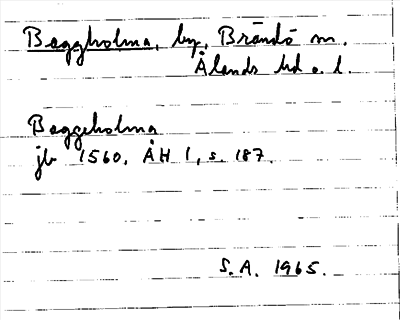 Baggholma, by, Brändö sn.
Ålands hd o. l.
Baggeholma
jb 1560. ÅH 1, s. 187.
S.A. 1965.